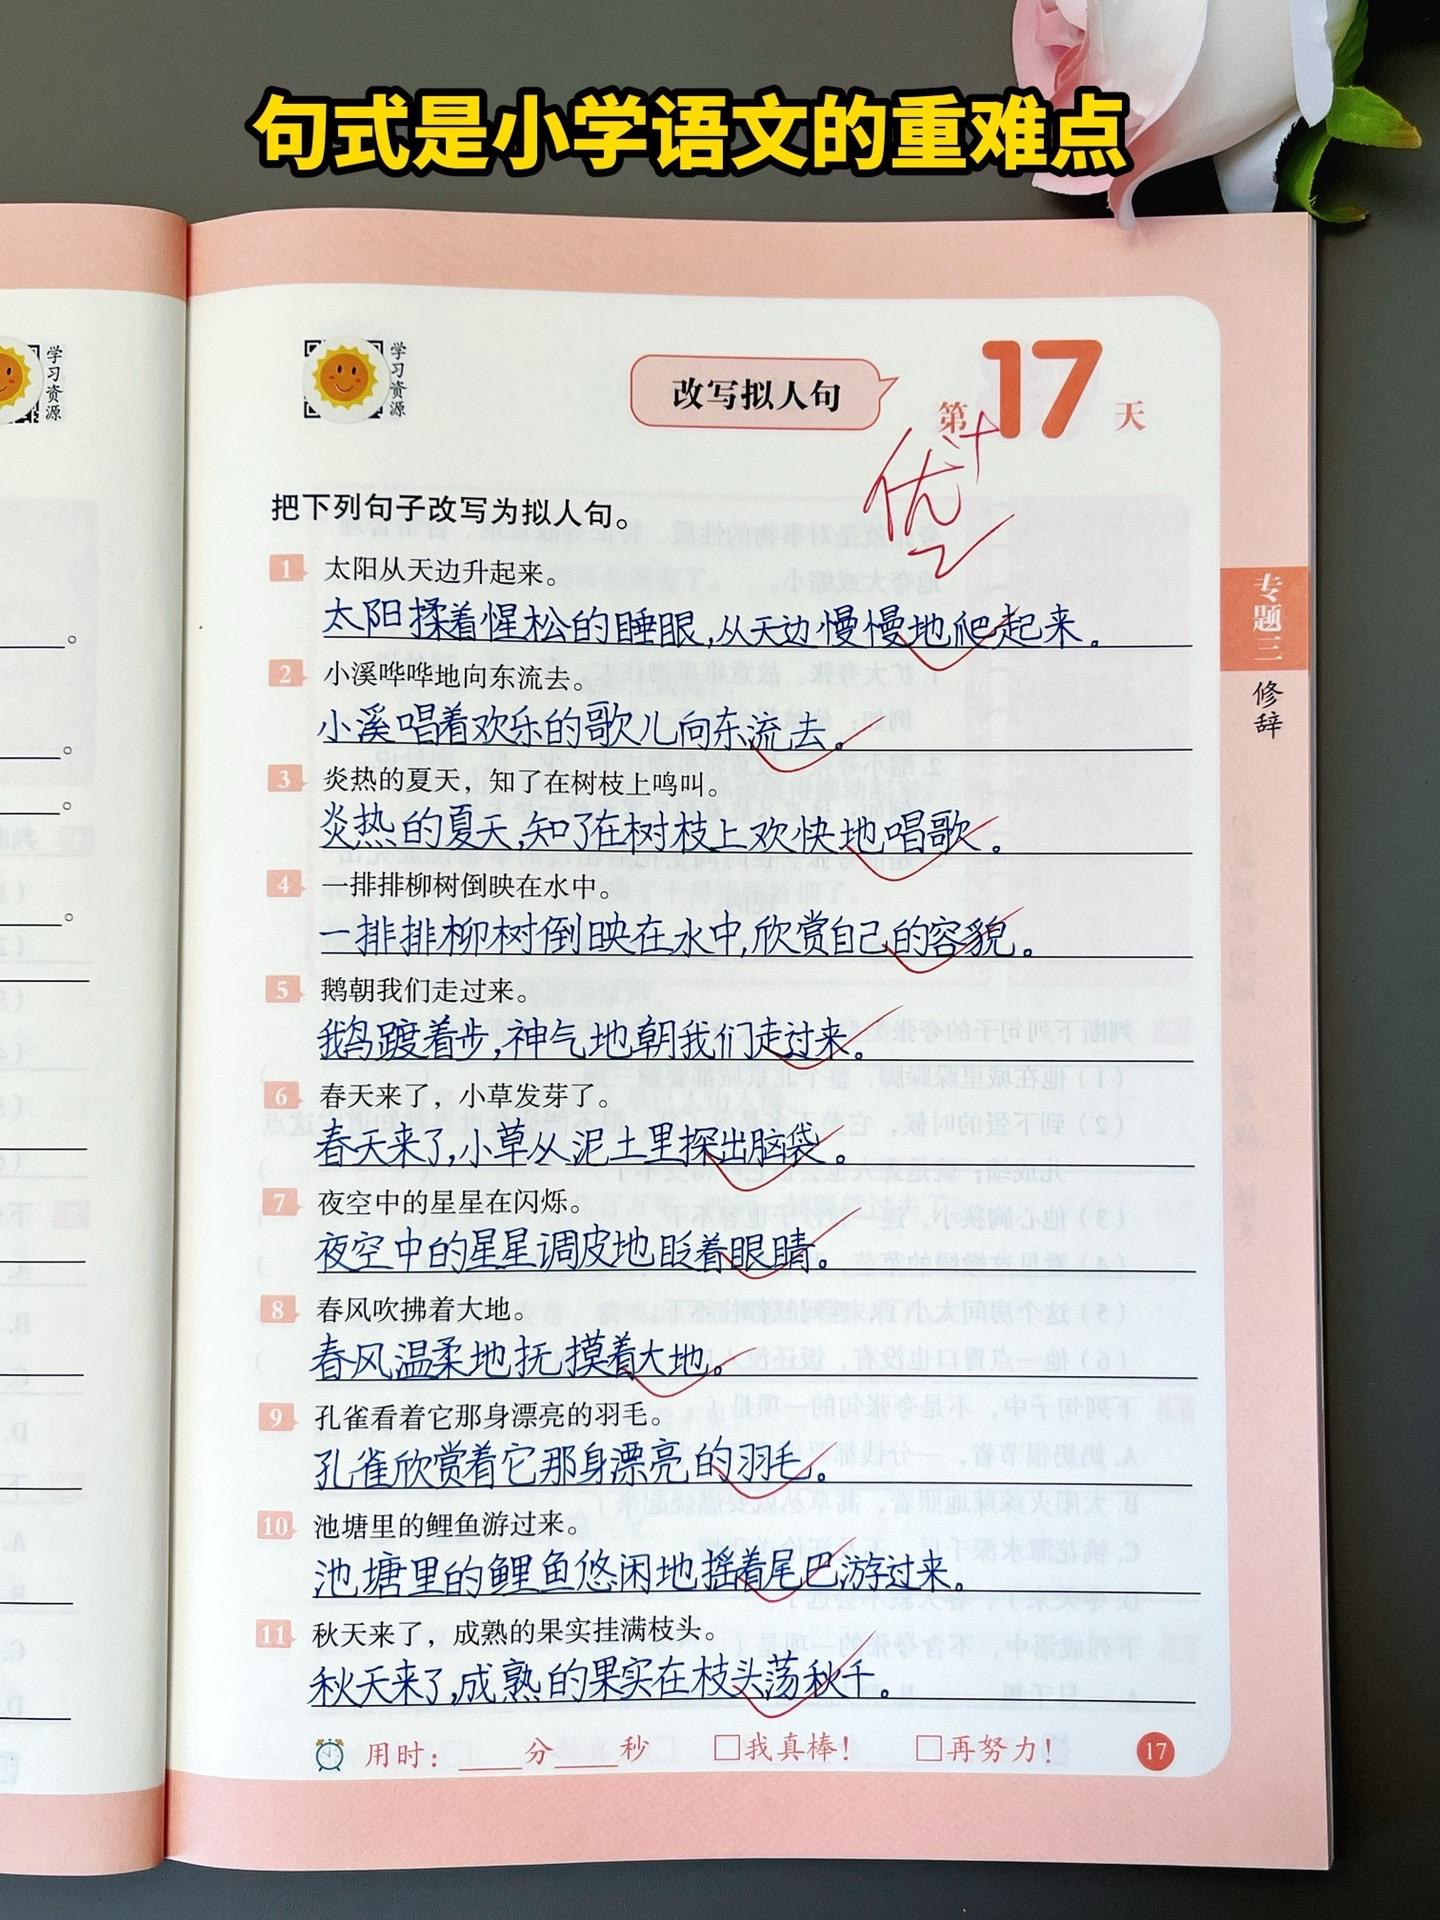 句式是小学语文的重难点
学习资源
学习资源
改写拟人句
第17天
优+
把下列句子改写为拟人句。
1 太阳从天边升起来。
太阳揉着惺松的睡眼,从天边慢慢地爬起来。
2 小溪哗哗地向东流去。
小溪唱着欢乐的歌儿向东流去。
3 炎热的夏天，知了在树枝上鸣叫。
炎热的夏天,知了在树枝上欢快地唱歌。
4 一排排柳树倒映在水中。
一排排柳树倒映在水中,欣赏自己的容貌。
5 鹅朝我们走过来。
鹅踱着步,神气地朝我们走过来。
6 春天来了，小草发芽了。
春天来了,小草从泥土里探出脑袋。
7 夜空中的星星在闪烁。
夜空中的星星调皮地眨着眼睛。
8 春风吹拂着大地。
春风温柔地抚摸着大地。
9 孔雀看着它那身漂亮的羽毛。
孔雀欣赏着它那身漂亮的羽毛。
10 池塘里的鲤鱼游过来。
池塘里的鲤鱼悠闲地摇着尾巴游过来。
11 秋天来了，成熟的果实挂满枝头。
秋天来了,成熟的果实在枝头荡秋千。
用时：____分____秒 □我真棒！ □再努力！ 17
专题三
修辞